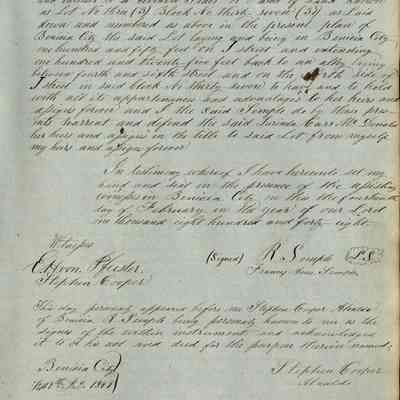 as Lot No three (3) Block No thirty seven (37) as laid
down and numbered as above in the present plan of
Benicia City the said Lot laying and being in Benicia City
one hundred and fifty feet on I street and extending
one hundred and twenty five feet back to an alley lying
between fourth and sixth street and on the North side of
I street in said block No thirty seven to have and to hold
with all its appurtenances and advantages to her heirs and
assigns forever and I the said Semple do by these pres-
ents warrant and defend the said Lurinda Carr McDonald
her heirs and assigns in the title to said Lot from myself
my heirs and assigns forever
In testimony whereof I have hereunto set my
hand and seal in the presence of the assisting
witnesses in Benicia City on this the fourteenth
day of February in the year of our Lord
one thousand eight hundred and forty eight
Witness
E. H. von Pfister. (Signed) R. Semple L.S.
Stephen Cooper
This day personally appeared before me Stephen Cooper Alcalde
of Benicia R Semple being personally known to me as the
signer of the within instrument and acknowledged
it to be his act and deed for the purpose therein named
Benicia City Stephen Cooper
Alcalde